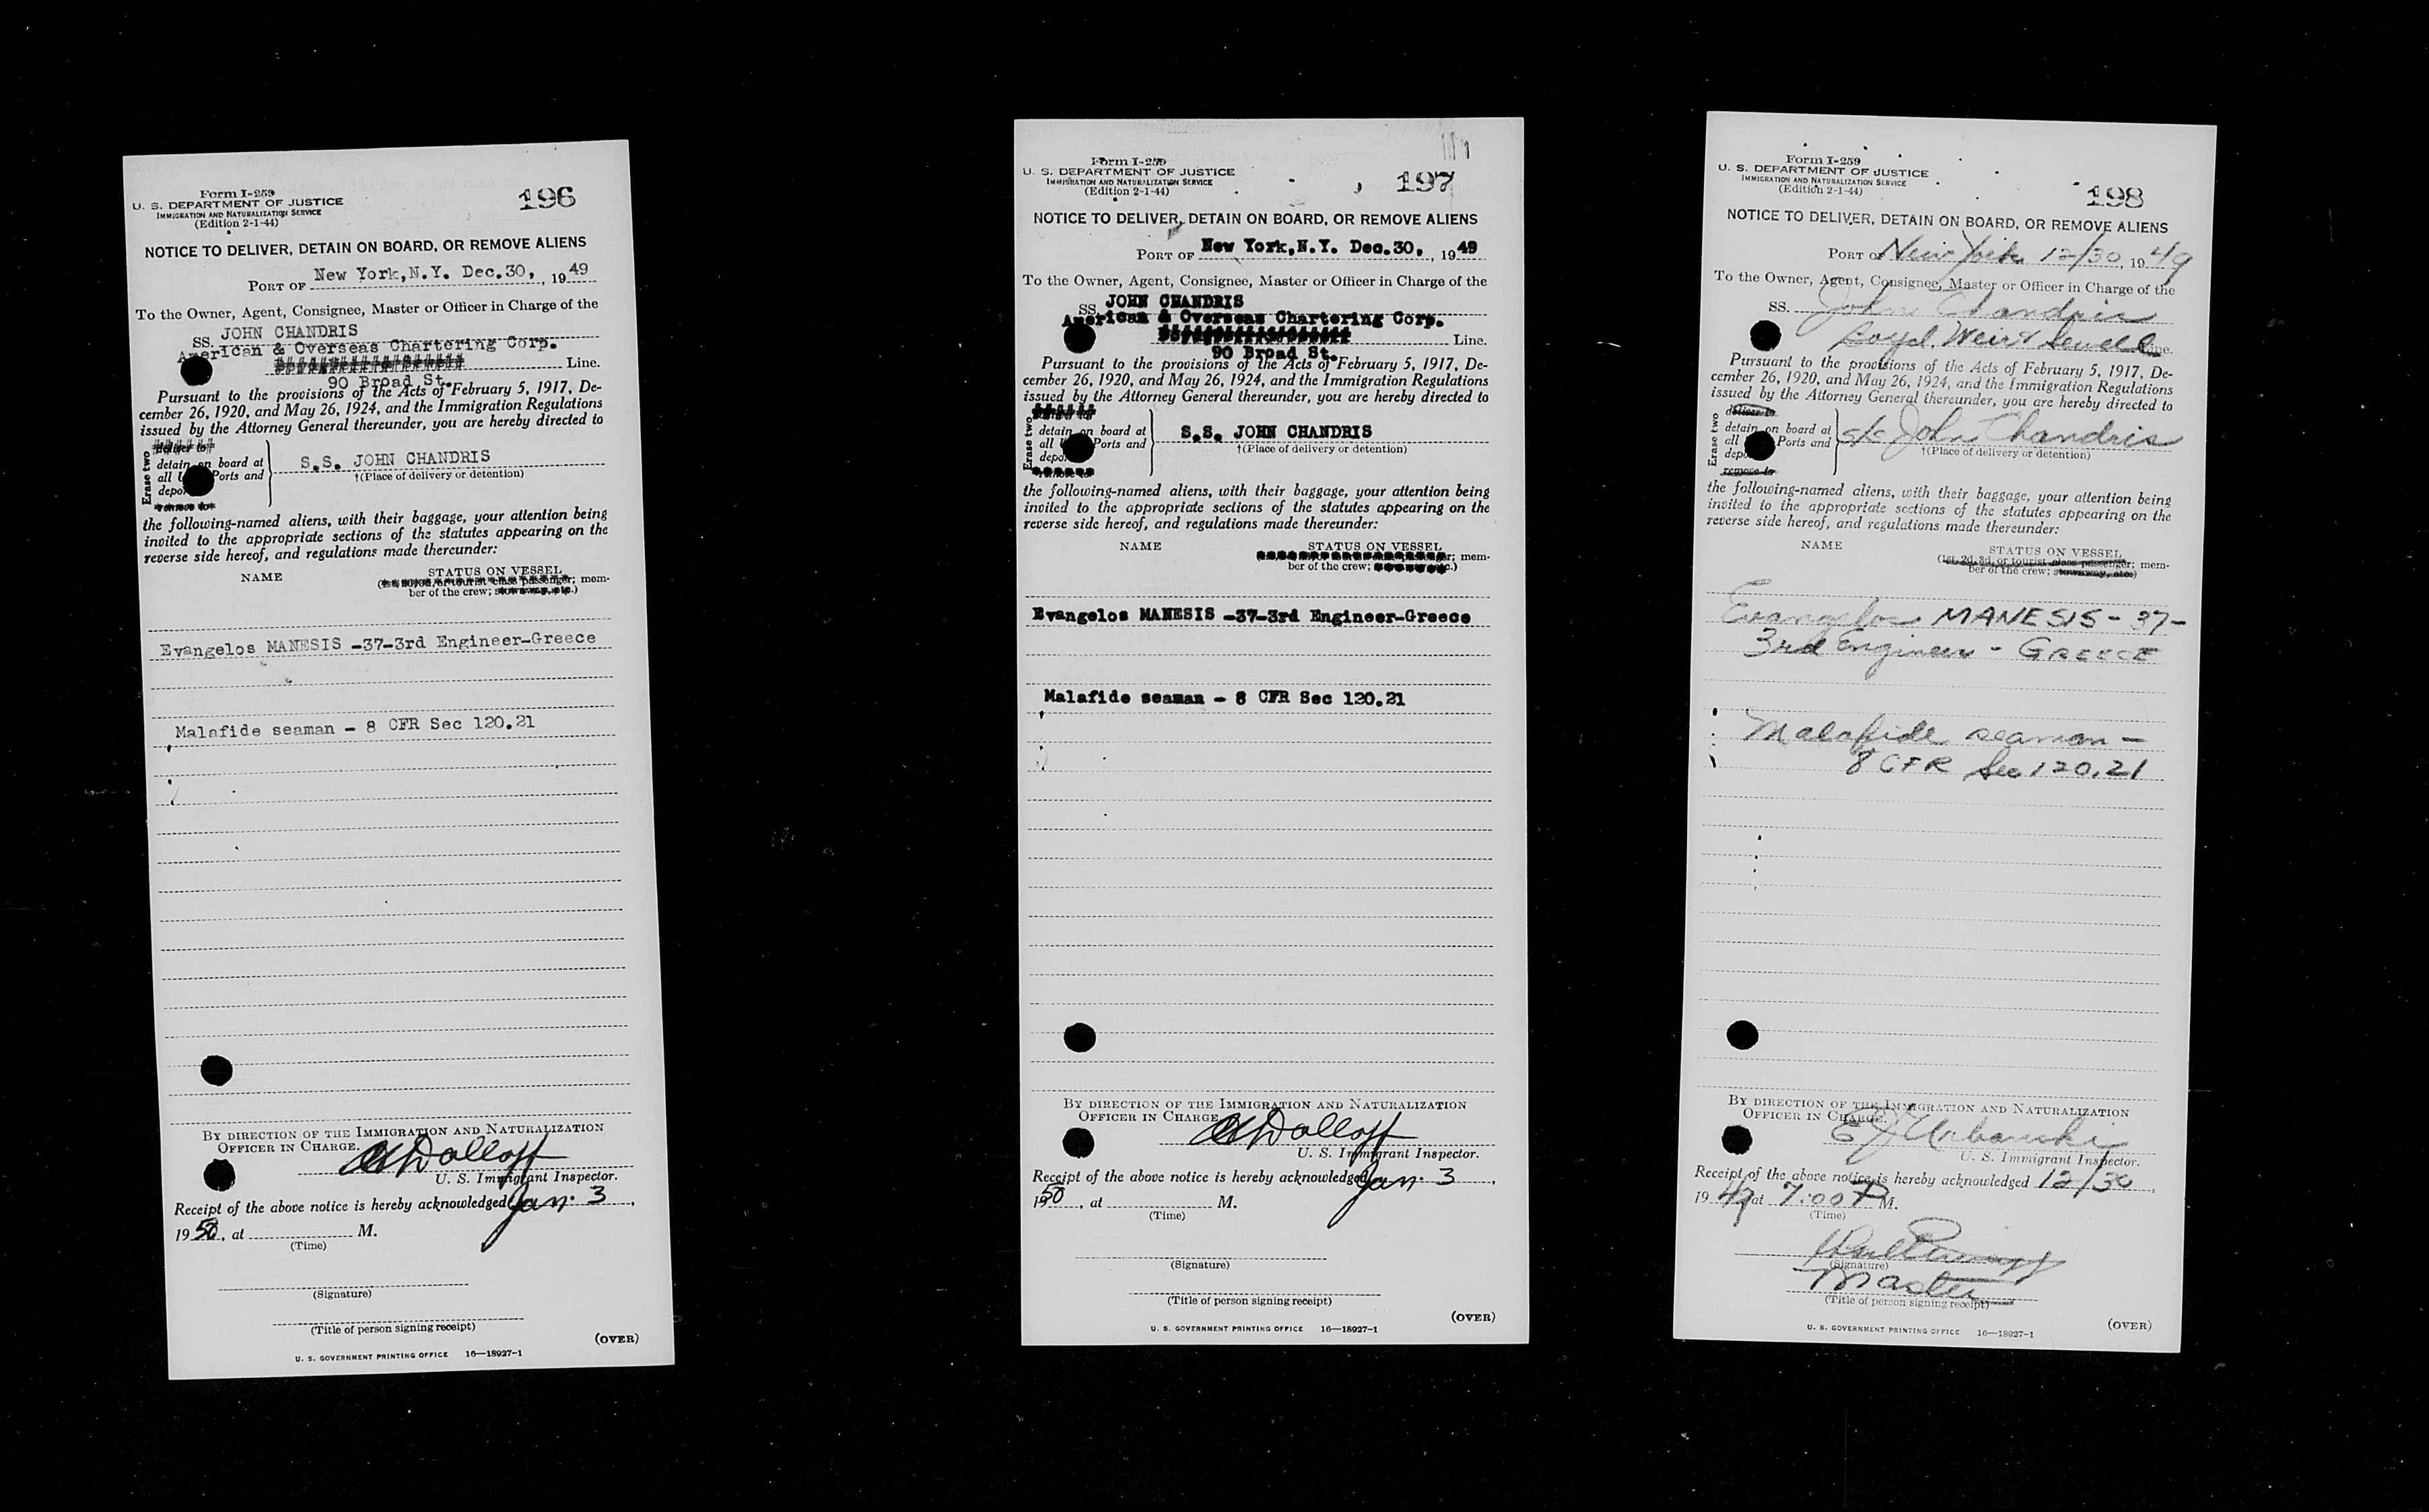 Form I-259
U. S. DEPARTMENT OF JUSTICE
IMMIGRATION AND NATURALIZATION SERVICE
(Edition 2-1-44)
196
NOTICE TO DELIVER, DETAIN ON BOARD, OR REMOVE ALIENS
PORT OF New York, N.Y. Dec. 30, , 19 49
To the Owner, Agent, Consignee, Master or Officer in Charge of the
SS. JOHN CHANDRIS
American & Overseas Chartering Corp.
Line.
90 Broad St.
Pursuant to the provisions of the Acts of February 5, 1917, De-
cember 26, 1920, and May 26, 1924, and the Immigration Regulations
issued by the Attorney General thereunder, you are hereby directed to
Erase two
deliver to
detain on board at
all U Ports and
depor
remove to
S.S. JOHN CHANDRIS
†(Place of delivery or detention)
the following-named aliens, with their baggage, your attention being
invited to the appropriate sections of the statutes appearing on the
reverse side hereof, and regulations made thereunder:
NAME
STATUS ON VESSEL
(1st, 2d, 3d, or tourist class passenger; mem-
ber of the crew; stowaway, etc.)
Evangelos MANESIS -37-3rd Engineer-Greece
Malafide seaman - 8 CFR Sec 120.21
BY DIRECTION OF THE IMMIGRATION AND NATURALIZATION
OFFICER IN CHARGE.
Dolloff
U. S. Immigrant Inspector.
Receipt of the above notice is hereby acknowledged Jan. 3 ,
19 50, at M.
(Time)
(Signature)
(Title of person signing receipt)
(OVER)
U. S. GOVERNMENT PRINTING OFFICE 16—18927-1
Form I-259
U. S. DEPARTMENT OF JUSTICE
IMMIGRATION AND NATURALIZATION SERVICE
(Edition 2-1-44)
197
NOTICE TO DELIVER, DETAIN ON BOARD, OR REMOVE ALIENS
PORT OF New York, N.Y. Dec. 30, , 19 49
To the Owner, Agent, Consignee, Master or Officer in Charge of the
SS. JOHN CHANDRIS
American & Overseas Chartering Corp.
Line.
90 Broad St.
Pursuant to the provisions of the Acts of February 5, 1917, De-
cember 26, 1920, and May 26, 1924, and the Immigration Regulations
issued by the Attorney General thereunder, you are hereby directed to
Erase two
detain on board at
all U Ports and
depor
remove to
S.S. JOHN CHANDRIS
†(Place of delivery or detention)
the following-named aliens, with their baggage, your attention being
invited to the appropriate sections of the statutes appearing on the
reverse side hereof, and regulations made thereunder:
NAME
STATUS ON VESSEL
mem-
ber of the crew;
Evangelos MANESIS -37-3rd Engineer-Greece
Malafide seaman - 8 CFR Sec 120.21
BY DIRECTION OF THE IMMIGRATION AND NATURALIZATION
OFFICER IN CHARGE.
Dolloff
U. S. Immigrant Inspector.
Receipt of the above notice is hereby acknowledged Jan. 3 ,
19 50, at M.
(Time)
(Signature)
(Title of person signing receipt)
(OVER)
U. S. GOVERNMENT PRINTING OFFICE 16—18927-1
Form I-259
U. S. DEPARTMENT OF JUSTICE
IMMIGRATION AND NATURALIZATION SERVICE
(Edition 2-1-44)
198
NOTICE TO DELIVER, DETAIN ON BOARD, OR REMOVE ALIENS
PORT OF New York 12/30, 19 49
To the Owner, Agent, Consignee, Master or Officer in Charge of the
SS. John Chandris
Boyd, Weir & Sewell Line.
Pursuant to the provisions of the Acts of February 5, 1917, De-
cember 26, 1920, and May 26, 1924, and the Immigration Regulations
issued by the Attorney General thereunder, you are hereby directed to
Erase two
deliver to
detain on board at
all Ports and
depo
remove to
John Chandris
†(Place of delivery or detention)
the following-named aliens, with their baggage, your attention being
invited to the appropriate sections of the statutes appearing on the
reverse side hereof, and regulations made thereunder:
NAME
STATUS ON VESSEL
(1st, 2d, 3d, or tourist class passenger; mem-
ber of the crew; stowaway, etc.)
Evangelos MANESIS - 37-
3rd Engineer - GREECE
Malafide seaman -
8 CFR Sec 120.21
BY DIRECTION OF THE IMMIGRATION AND NATURALIZATION
OFFICER IN CHARGE.
E J Urbanski
U. S. Immigrant Inspector.
Receipt of the above notice is hereby acknowledged 12/30,
19 49 at 7:00 P M.
(Time)
(Signature)
Master
(Title of person signing receipt)
(OVER)
U. S. GOVERNMENT PRINTING OFFICE 16—18927-1